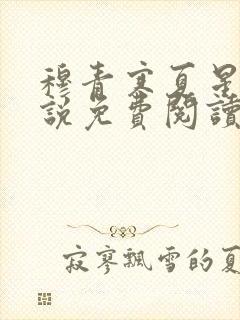 穆青寒夏星
說免費閱讀
寂寥飄雪的夏